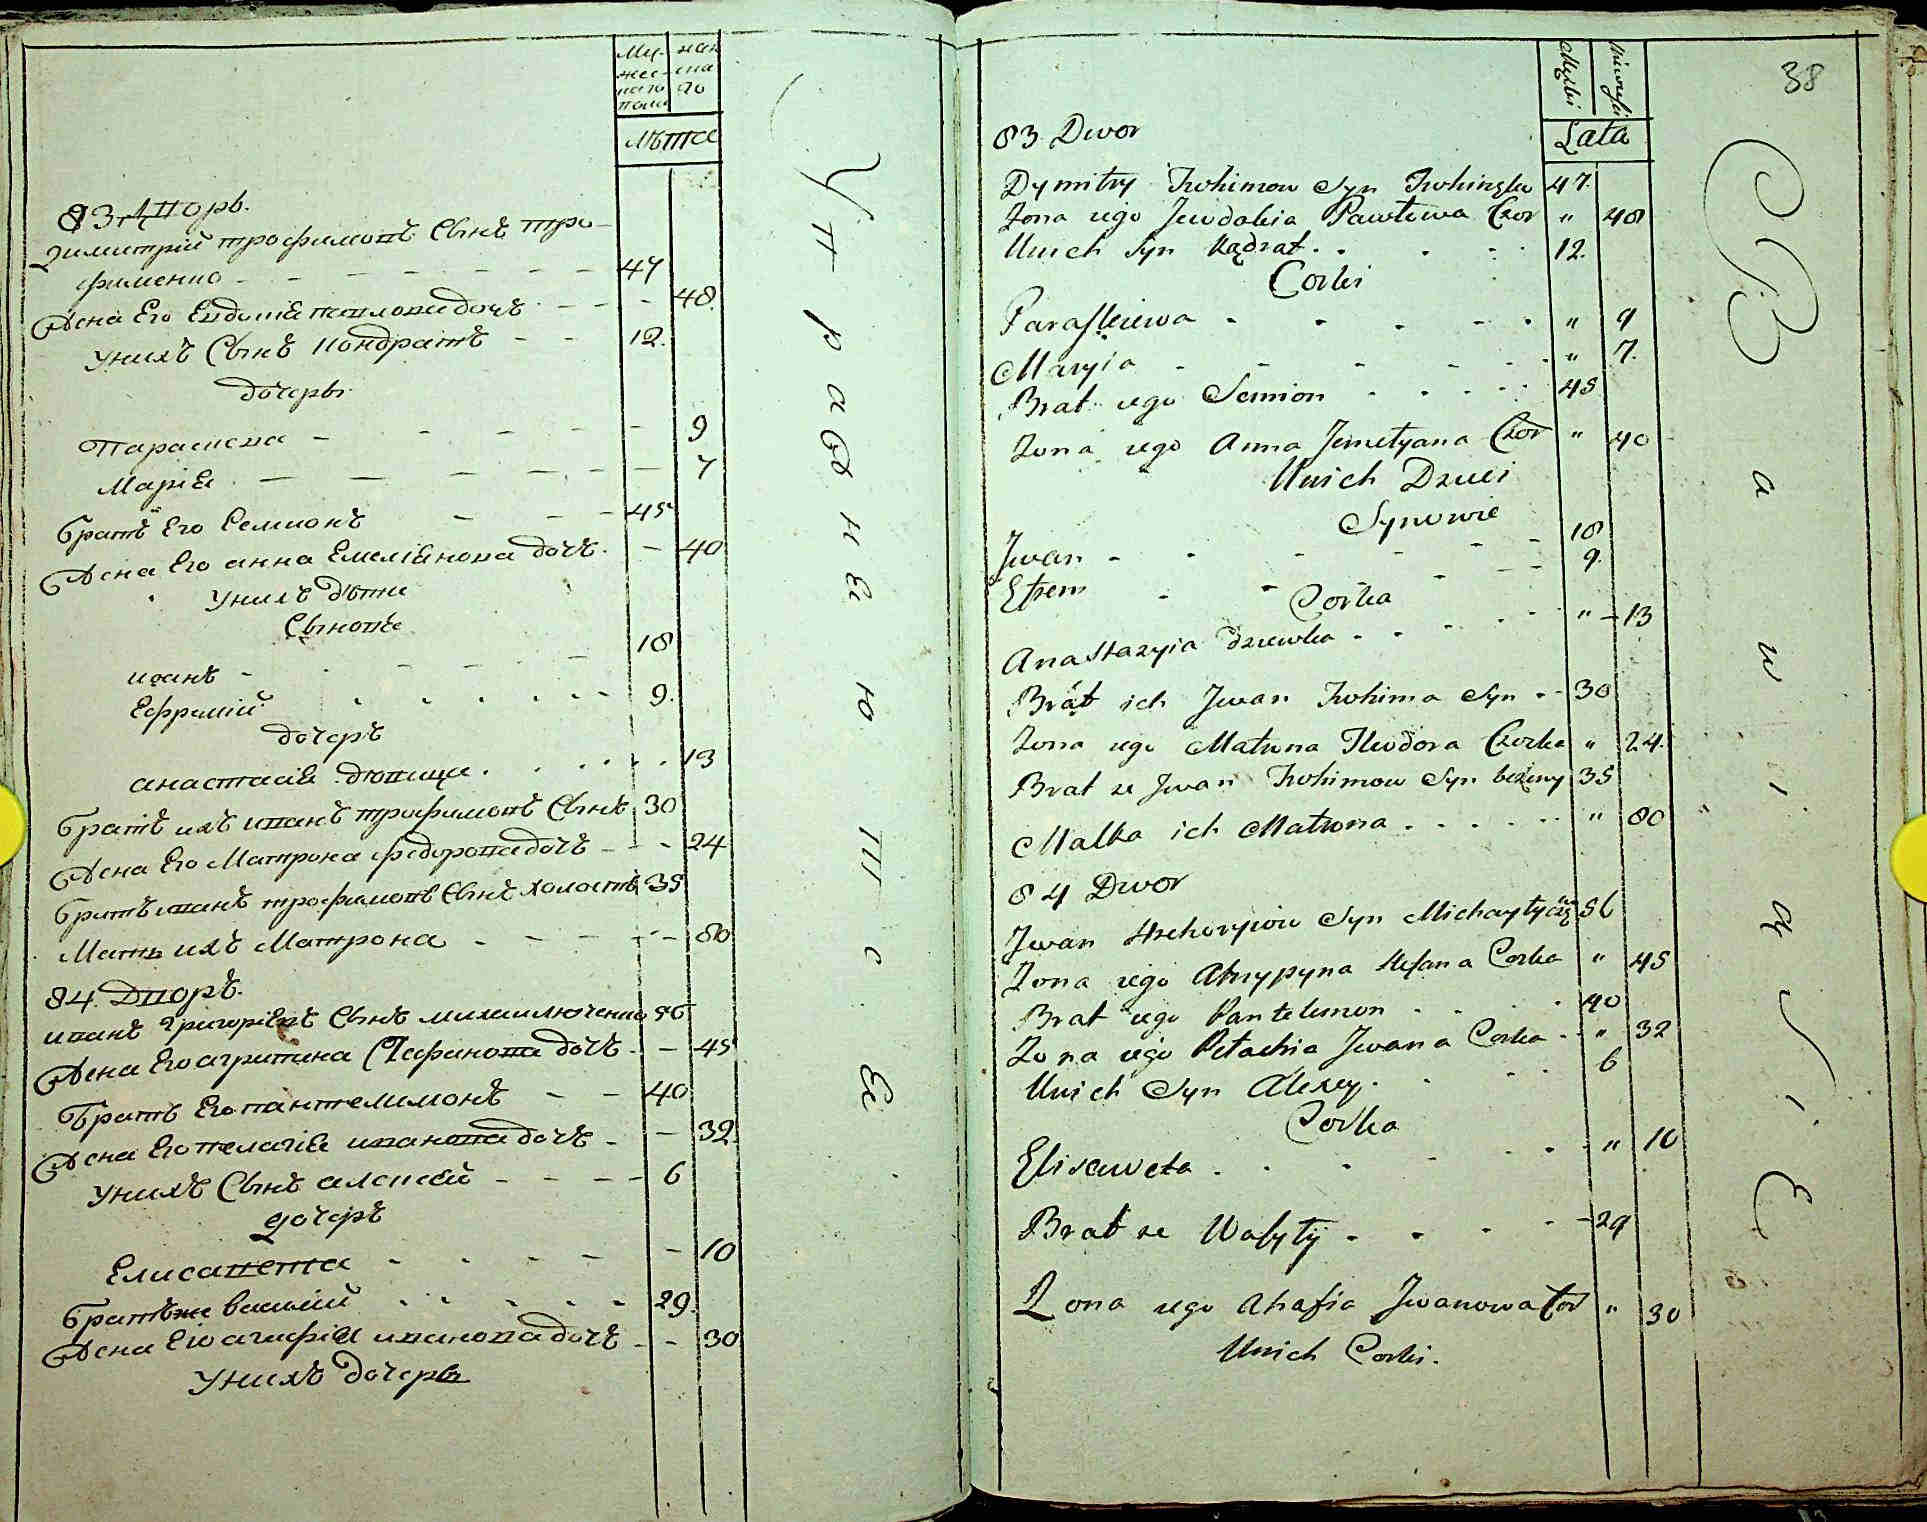 Му- жен
жес- ска
каго го
пола
лѣта
83. Дворъ.
Димитрій трофимовъ Сынъ тро-
фименко - - - - - - - 47
Жена Его Евдокія павлова дочъ - - - 48.
унихъ Сынъ кондратъ - - 12.
дочеры
Параскева - - - - - - 9
Марія - - - - - - 7
братъ Его Семионъ - - - 45
Жена Его анна Емеліанова дочъ. - 40
унихъ дѣти
Сыновѣ
иванъ - - - - - 18
Ефремій - - - - - 9.
дочеръ
анастасія дѣвица. . . . . . 13
братъ ихъ иванъ трофимовъ Сынъ 30
Жена Его Матрона федорова дочъ - - - 24
братъ иванъ трофимовъ Сынъ холостъ 35
Мать ихъ Матрона - - - - - - 80
84. Дворъ.
иванъ григоріевъ Сынъ михаилюченко 56
Жена Его агрипина Стефанова дочъ - - 45
братъ Его пантелимонъ - - 40
Жена Его пелагія иванова дочъ - - 32.
унихъ Сынъ алексей - - - - 6
дочеръ
Елисавета - - - - - 10
братъже василій . . . . - 29.
Жена Его агафія иванова дочъ - - 30
унихъ дочеры
Управнею тс е
38
Męzki
Lata
83 Dwor
Dymitry Trohimow Syn 47.
Zona iego Jewdokia Pawłowa Cor " 48
Unich Syn Kądrat. . . . . 12.
Corki
Paraskiewa - - - - - " 9
Maryia - - - - - " 7.
Brat iego Semion . . . . 45
Zona iego Anna Cor " 40
Unich Dzieci
Synowie
Jwan - - - - - 18
Efrem - - - - 9.
Corka
Anastazyia dziewka - - - - " - 13
Brat ich Jwan Trohima Syn - - 30
Zona iego Matrona Theodora Corka " 24.
Brat ze Jwan Trohimow Syn 35
Matka ich Matrona . . . . . " 80
84 Dwor
Jwan Hrehoryiow Syn 56
Zona iego Ahrypyna Stefana Corka " 45
Brat iego Pantelimon . . . 40
Zona iego Jwana Corka - - " 32
Unich Syn Alexey. . . . 6
Corka
Elisaweta . . . - . . " 10
Brat ze . . . - 29
Zona iego Ahafia Jwanowa Cor " 30
Unich Corki.